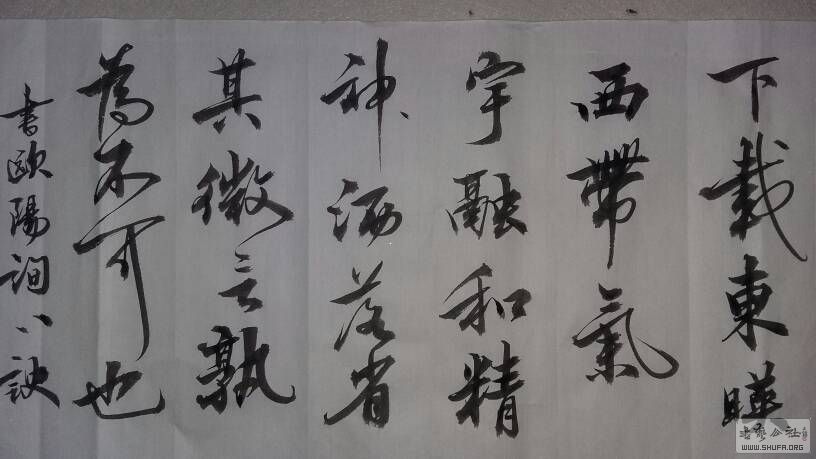 下載東暎
西帶氣
宇融和精
神洒落省
其微言孰
為不可也
書歐陽詢八訣
書藝公社
WWW.SHUFA.ORG